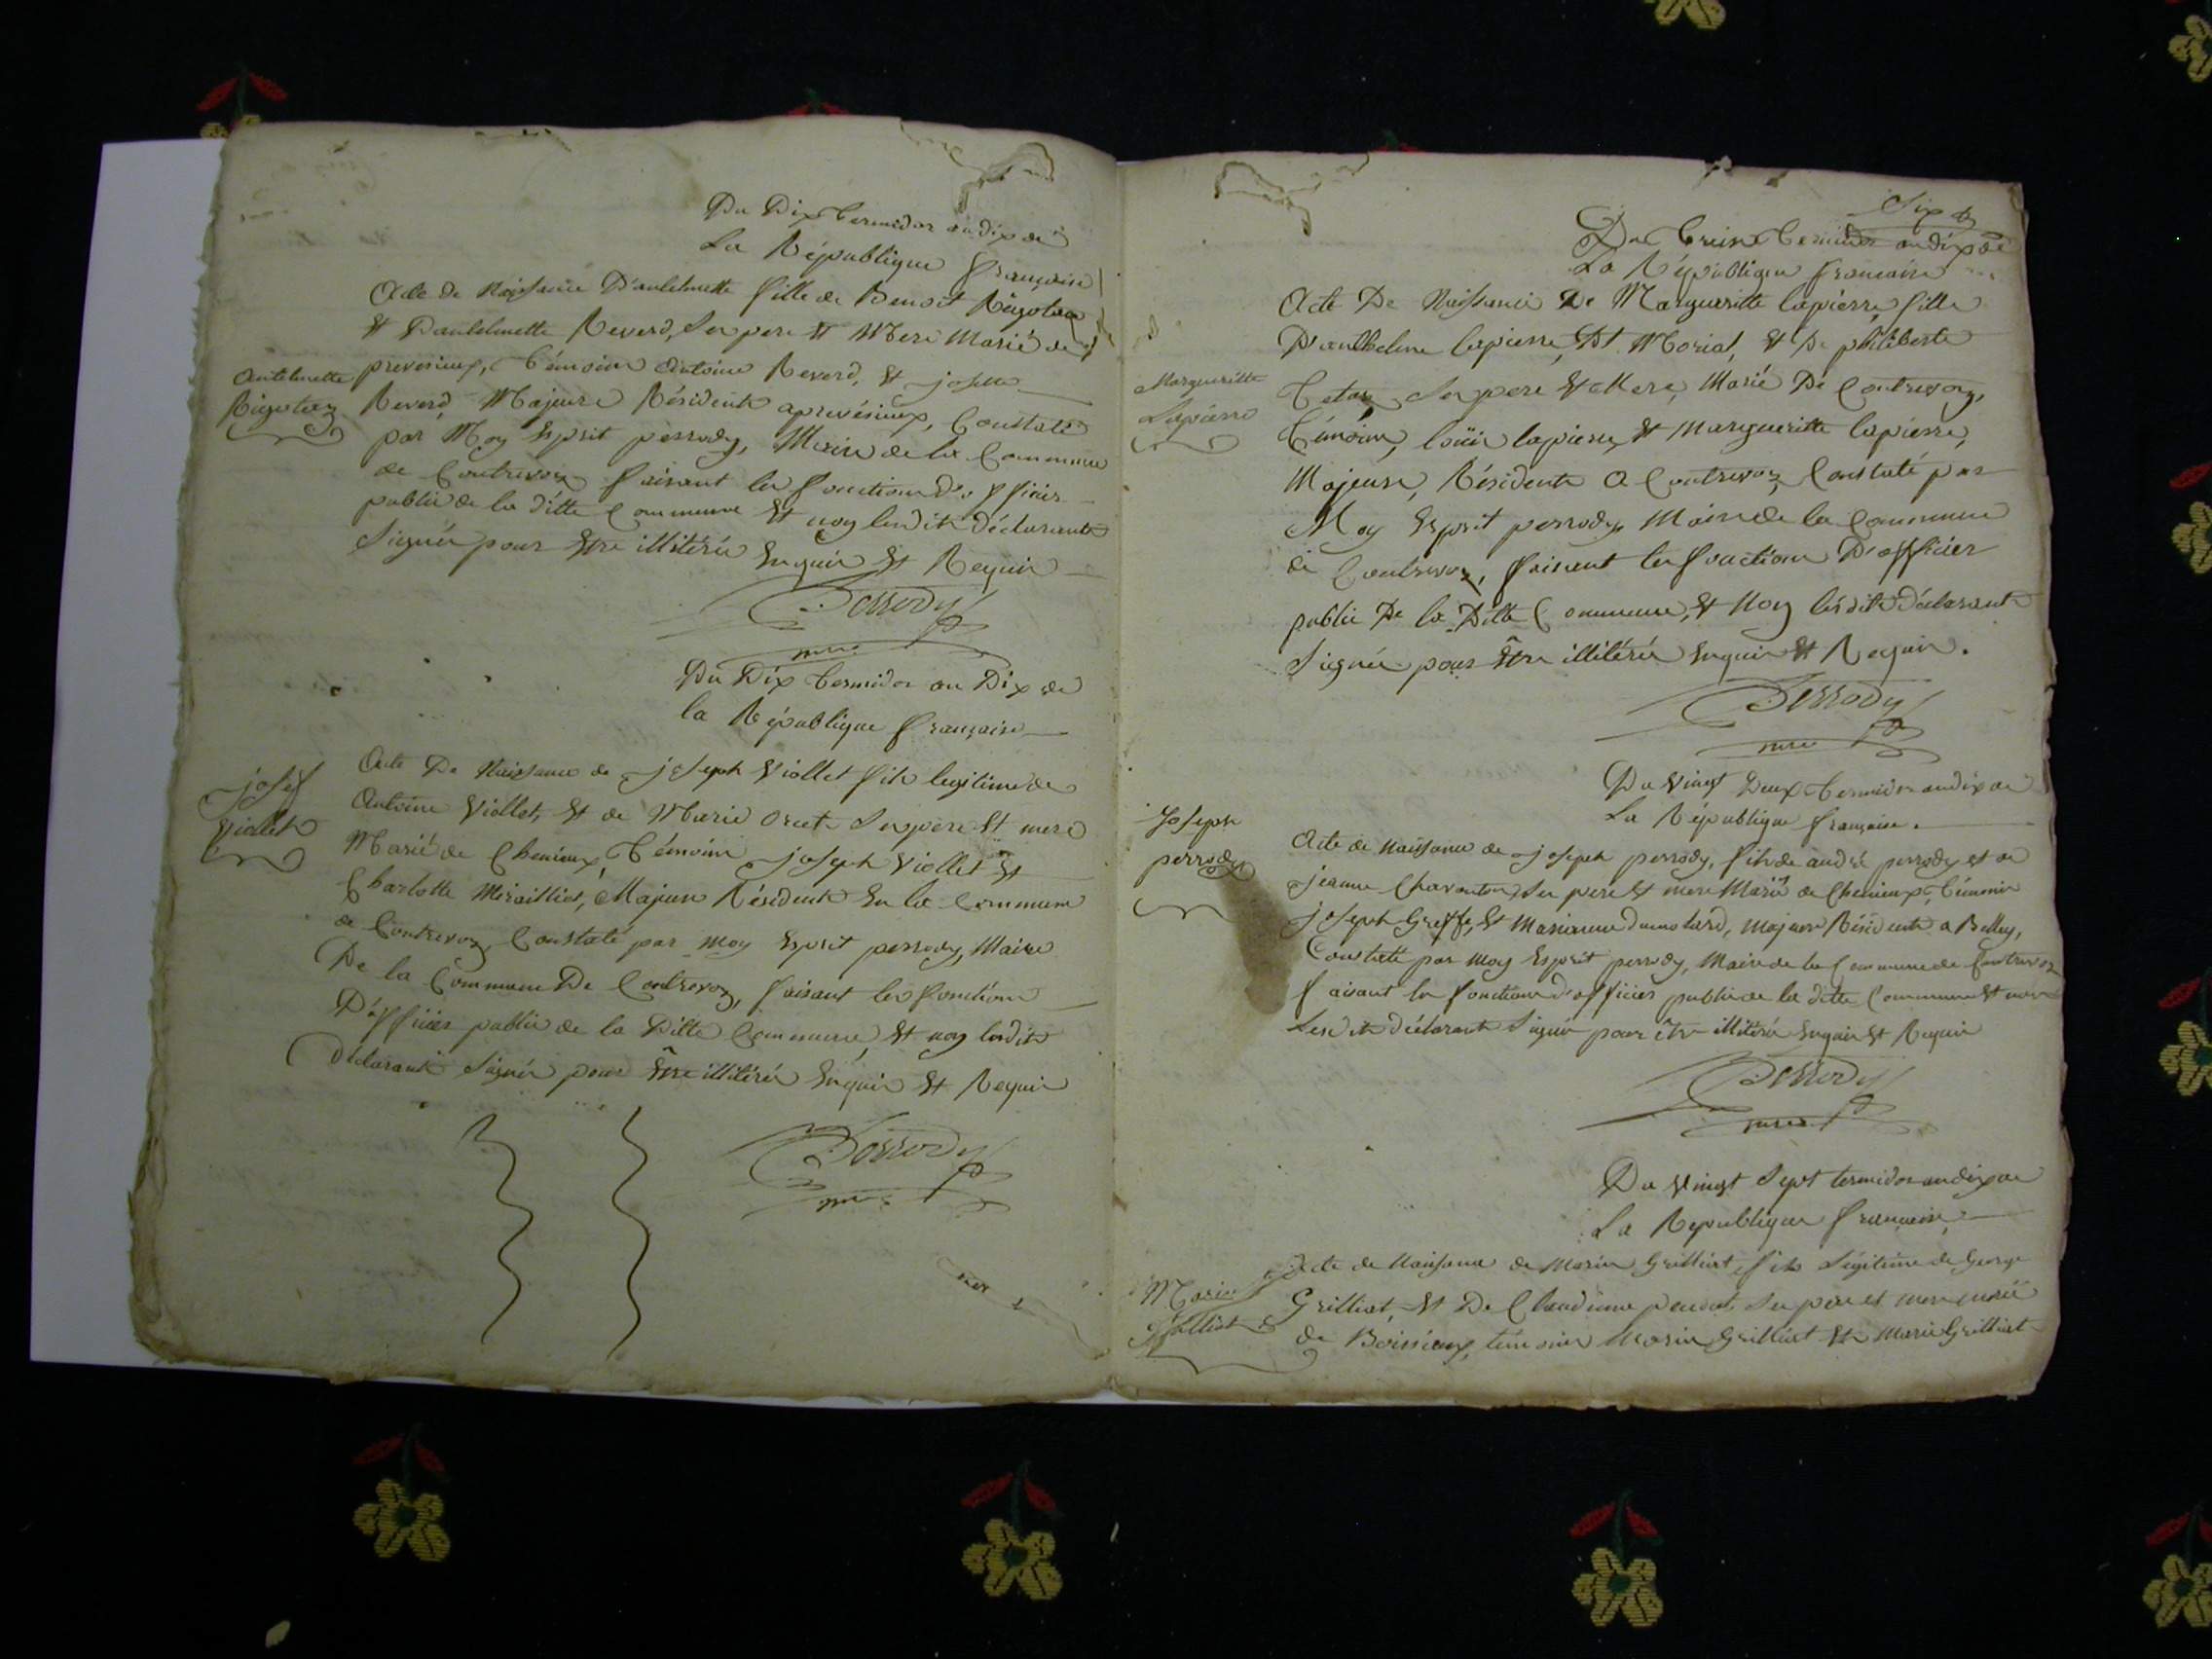 Du Dix termidor an dix de
La République française
Acte de Naissance D'antelmette fille de Benoit Rigottaz
Et D'antelmette Reverd, Ses pere Et Mere Marié de
prevesieux, témoins Antoine Reverd, Et josette
Antelmette
Rigottaz
Reverd, Majeurs Résidents a prevésieux, Constaté
par Moy Esprit perrody, Maire de la Commune
de Contrevoz faisant les fonctions d'officier
public de la ditte Commune Et noy lesdits déclarants
Signés pour Etre illitérés Enquis Et Requis
Perrody
mre
Du Dix termidor an Dix de
la République française
josef
Viollet
Acte De Naissance de joseph Viollet fils legitime de
Antoine Viollet, Et de Marie Ses pere Et mere
Marié de Chenieux, témoins joseph Viollet Et
Charlotte Majeurs Résidents En la Commune
de Contrevoz, Constaté par moy Esprit perrody, Maire
De la Commune De Contrevoz, faisant les fonctions
D'officier public de la Ditte Commune, Et noy lesdits
Déclarants Signés pour Être illitérés Enquis Et Requis
Perrody
mre
Six
Du treize termidor an dix de
La République française
Acte De Naissance De Margueritte lapierre fille
D'anthelme lapierre, Et De philiberte
Ses pere Et Mere, Marié De Contrevoz,
Margueritte
Lapierre
témoins, loüis lapierre, Et Margueritte lapierre,
Majeurs, Résidents a Contrevoz, Constaté par
Moy Esprit perrody, Maire de la Commune
de Contrevoz, faisant les fonctions D'officier
public De la Ditte Commune, Et Noy lesdits déclarants
Signés pour Être illitérés Enquis Et Requis.
Perrody
mre
Du Vingt Deux termidor an dix de
La République française.
Joseph
perrody
Acte de Naissance de joseph perrody, fils de andré perrody et de
jeanne Ses pere Et mere Marié de Chenieux, témoins
joseph Greffe, Et Marianne Dumolard, majeurs Résidents a Belley,
Constaté par moy Esprit perrody, Maire de la Commune de Contrevoz
faisant les fonctions d'officier public de la ditte Commune Et noy
Lesdits déclarants Signés pour être illitérés Enquis Et Requis
Perrody
mre
Du Vingt Sept termidor an dix de
La Republique française
Marin
Grilliat
Acte de Naissance de Marin Grilliat, fils Légitime de George
Grilliat, Et De Claudinne Ses pere et mere marié
de Boissieux, témoins Marin Grilliat Et Marie Grilliat